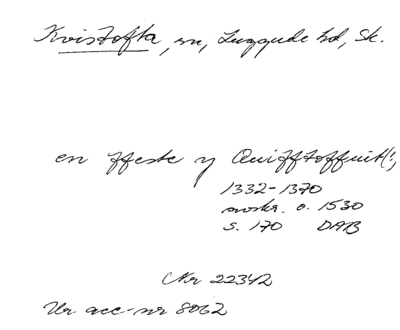 Kvistofta, sn, Luggude hd, Sk.
en ffeste y Quiffstoffuit(!)
1332-1370
avskr. o. 1530
s. 170 DAB
Nr 22342
Ur acc-nr 8062